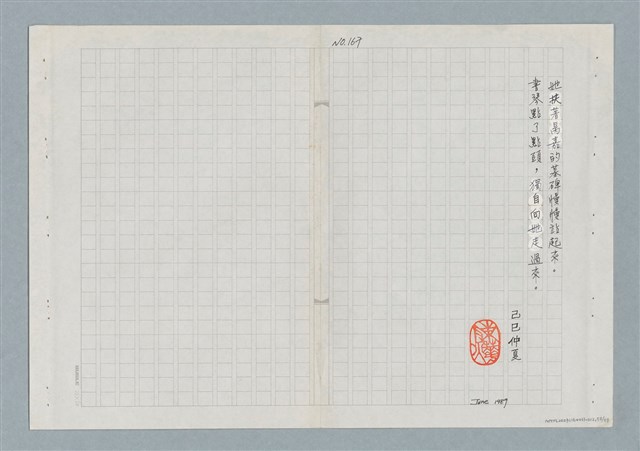 NO.167
她扶著萬嘉的墓碑慢慢站起來。
幸琴點了點頭，獨自向她走過來。
己巳仲夏
June 1989